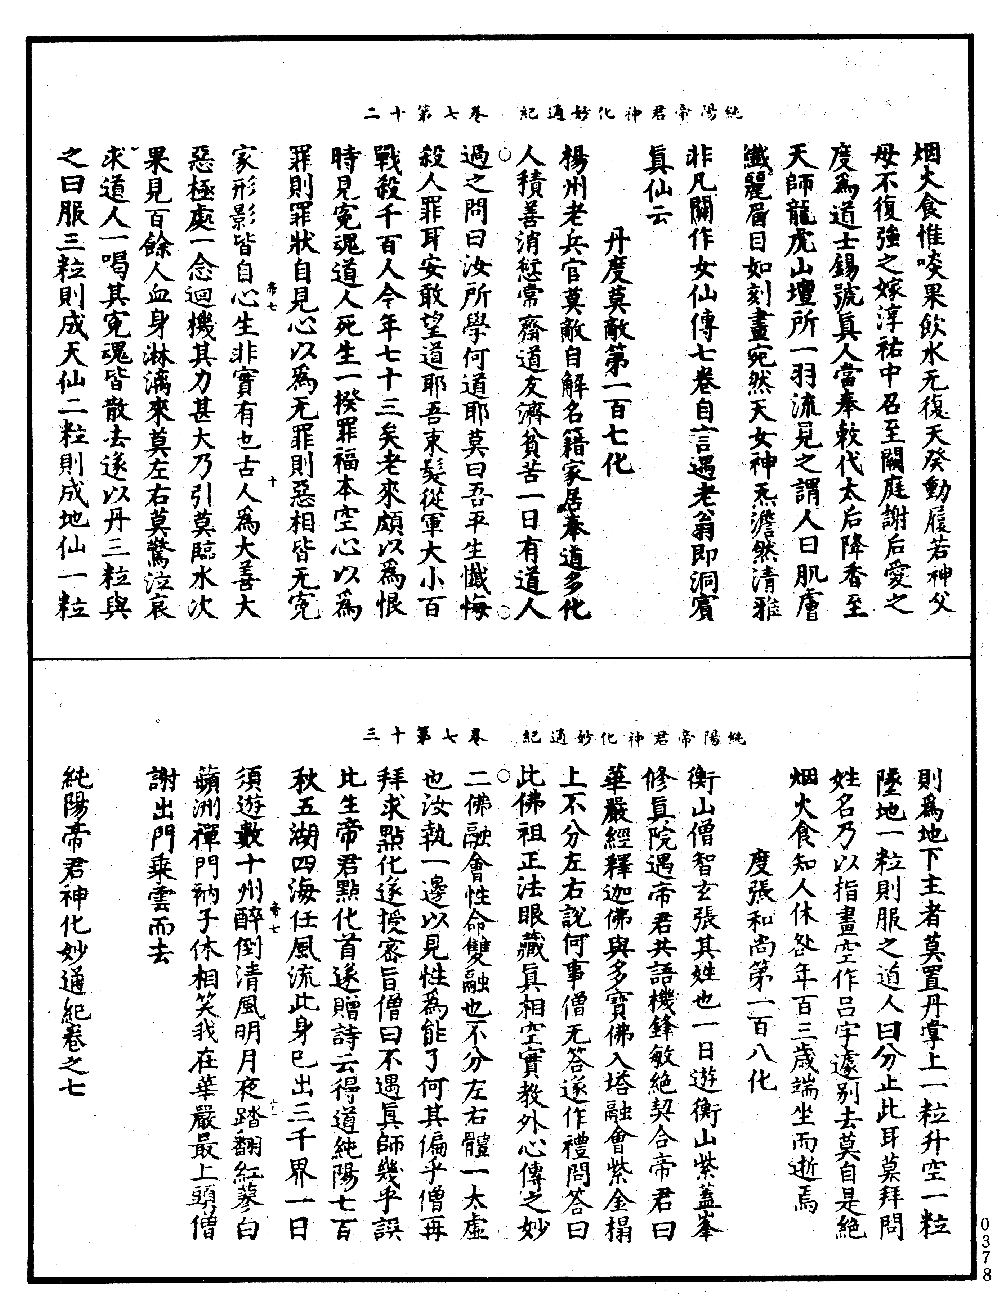 純陽帝君神化妙通紀　卷七第十二
烟火食惟啖果飲水无復天癸動履若神父
母不復強之嫁淳祐中召至闕庭謝后愛之
度為道士錫號真人當奉敕代太后降香至
天師龍虎山壇所一羽流見之謂人曰肌膚
纖麗眉目如刻畫宛然天女神炁澹然清雅
非凡閑作女仙傳七卷自言遇老翁即洞賓
真仙云
丹度莫敵第一百七化
楊州老兵官莫敵自解名籍家居奉道多化
人積善消愆常齋道友濟貧苦一日有道人
過之問曰汝所學何道耶莫曰吾平生懺悔
殺人罪耳安敢望道耶吾束髮從軍大小百
戰殺千百人今年七十三矣老來頗以為恨
時見冤魂道人死生一揆罪福本空心以為
罪則罪狀自見心以為无罪則惡相皆无冤
帝七　十
家形影皆自心生非實有也古人為大善大
惡極處一念迴機其力甚大乃引莫臨水次
果見百餘人血身淋漓來莫左右莫驚泣哀
求道人一喝其冤魂皆散去遂以丹三粒與
之曰服三粒則成天仙二粒則成地仙一粒
純陽帝君神化妙通紀　卷七第十三
則為地下主者莫置丹掌上一粒升空一粒
墜地一粒則服之道人曰分止此耳莫拜問
姓名乃以指畫空作呂字遽別去莫自是絕
烟火食知人休咎年百三歲端坐而逝焉
度張和尚第一百八化
衡山僧智玄張其姓也一日遊衡山紫蓋峯
修真院遇帝君共語機鋒敏絕契合帝君曰
華嚴經釋迦佛與多寶佛入塔融會紫金榻
上不分左右說何事僧无答遂作禮問答曰
此佛祖正法眼藏真相空實教外心傳之妙
二佛融會性命雙融也不分左右體一太虛
也汝執一邊以見性為能了何其偏乎僧再
拜求點化遂授密旨僧曰不遇真師幾乎誤
比生帝君點化首遂贈詩云得道純陽七百
秋五湖四海任風流此身已出三千界一日
帝七　十一
須遊數十州醉倒清風明月夜踏翻紅蓼白
蘋洲禪門衲子休相笑我在華嚴最上頭僧
謝出門乘雲而去
純陽帝君神化妙通紀卷之七
0378